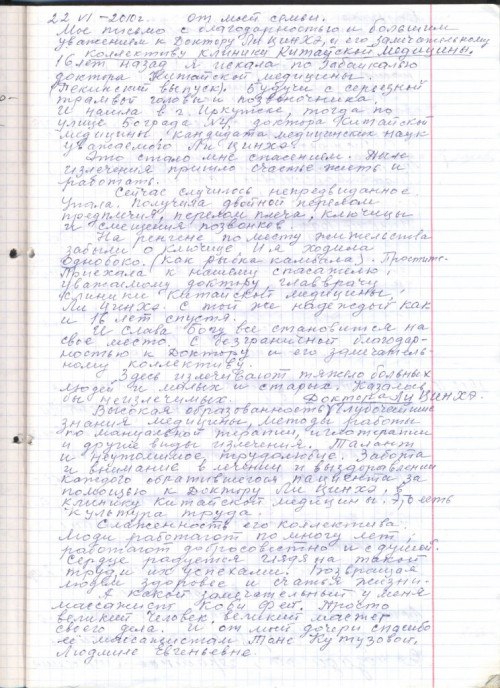 22 VI - 2010г. от моей семьи.
Мое письмо с благодарностью и большим
уважением к Доктору Ли Цинхэ, и его замечательному
коллективу клиники Китайской медицины.
16 лет назад я искала по Забайкалью
доктора Китайской медицины.
(Пекинский выпуск). Будучи с серьезной
травмой головы и позвоночника.
И нашла в г. Иркутске, тогда по
улице Бограда доктора Китайской
медицины кандидата медицинских наук
уважаемого Ли Цинхэ.
Это стало мне спасением. После
излечения пришло счастье жить и
работать.
Сейчас случилось непредвиданное.
Упала. Получила двойной перелом
предплечия, перелом плеча, ключицы
и смещения позвонков.
На ренгене по месту жительства
забыли о ключице. И я ходила
однобоко, (как рыбка камбала). Простите.
Приехала к нашему спасателю,
уважаемому доктору главврачу
клиники Китайской медицины,
Ли Цинхэ. С той же надеждой как
и 16 лет спустя.
И Слава Богу все становится на
свое место. С безграничной благодар-
ностью к Доктору и его замечатель-
ному коллективу.
Здесь излечивают тяжело больных
людей и малых и старых. Казалось
бы неизлечимых. Доктора Ли Цинхэ.
Высокая образованность, глубочайшие
знания медицины, методы работы
по мануальной терапии, иглотерапии
и другие виды излечения. Талант
и неутомимое трудолюбие. Забота
и внимание в лечении и выздоравлении
каждого обратившегося пациента за
помощью к Доктору Ли Цинхэ, в
клинику Китайской медицины. Это есть
Культура труда.
Слаженность его коллектива.
Люди работают по многу лет,
работают добросовестно и с душей.
Сердце радуется глядя на такой
труд и их успехами. Возвращая
людям здоровье и счастья жизни.
А какой замечательный у меня
массажист Кову Фей. Просто
великий человек, великий мастер
своего дела. И от моей дочери спасибо
её массажистам Тане Кутузовой,
Людмиле Евгеньевне.